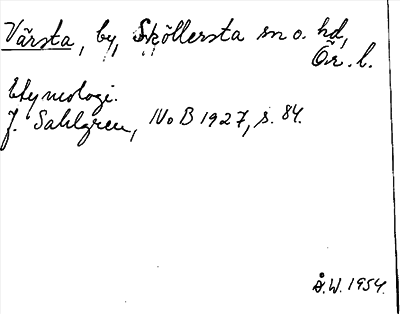 Värsta, by, Sköllersta sn o. hd,
Ör. l.
Etymologi.
J. Sahlgren, NoB 1927, s. 84.
Å.W. 1954.